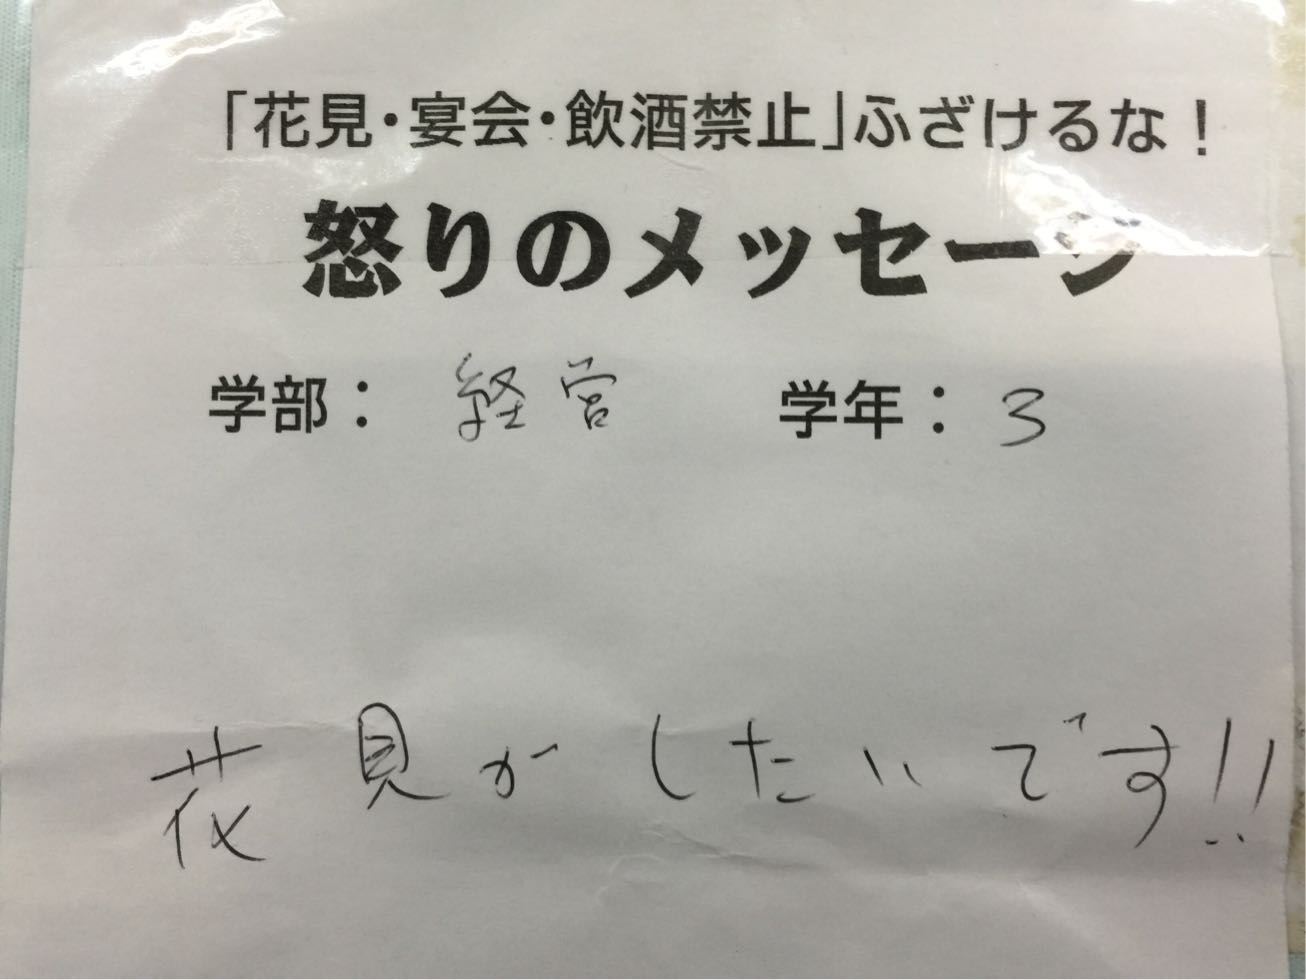 「花見・宴会・飲酒禁止」ふざけるな！
怒りのメッセージ
学部： 経営 学年： 3
花見がしたいです!!